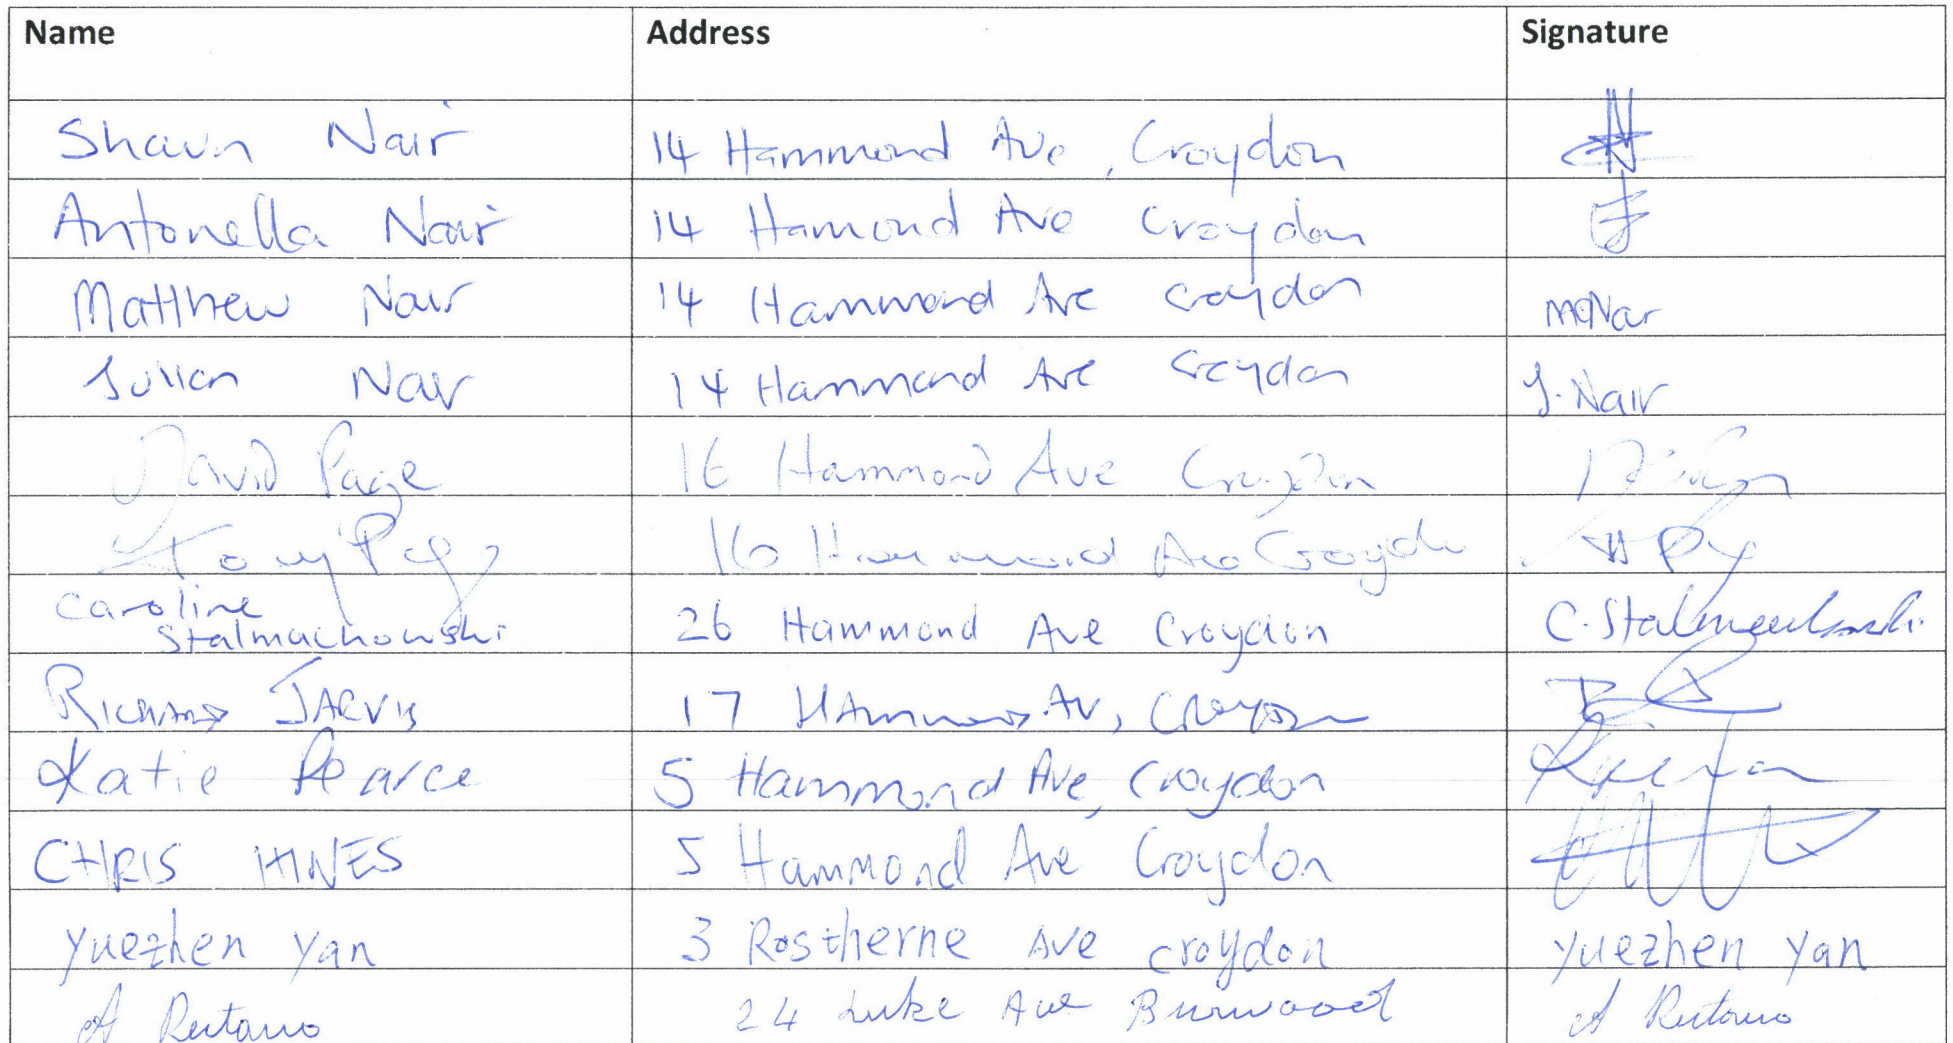 Name Address Signature
Shaun Nair 14 Hammond Ave, Croydon
Antonella Nair 14 Hamond Ave Croydon
Matthew Nair 14 Hammond Ave Croydon
Julian Nair 14 Hammond Ave Croydon J. Nair
David Page 16 Hammond Ave Croydon
16 Hammond Ave
Caroline
Stalmachowski 26 Hammond Ave Croydon C. Stalmachowski
RICHARD JARVIS 17 Hammond Av, Croydon
Katie Pearce 5 Hammond Ave, Croydon
CHRIS HINES 5 Hammond Ave Croydon
Yuezhen Yan 3 Rostherne Ave croydon Yuezhen Yan
A 24 Luke Ave Burwood A